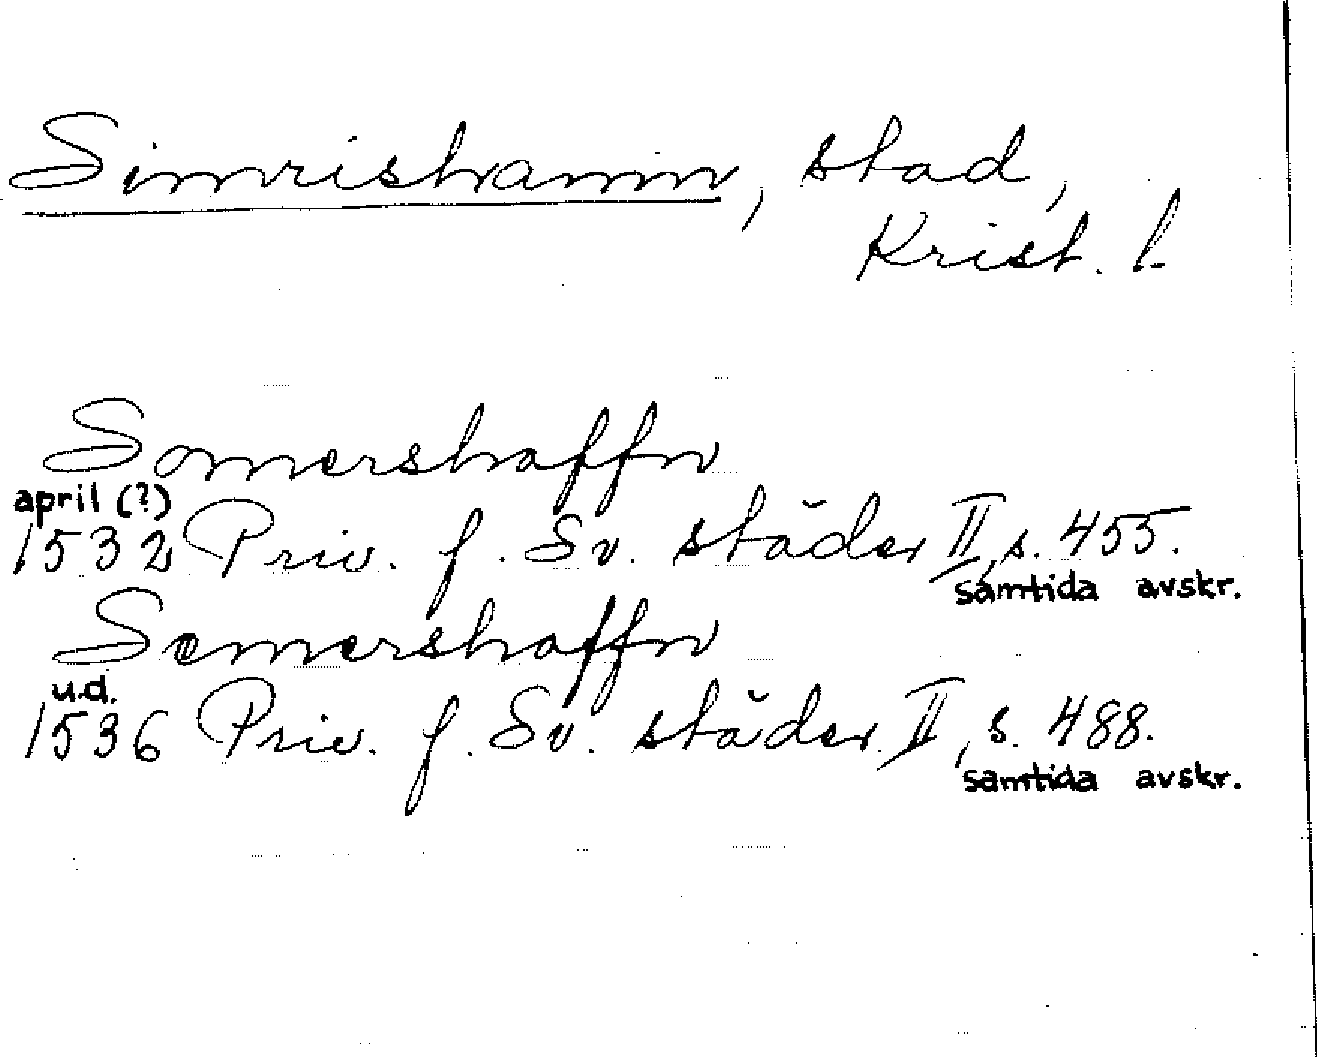 Simrishamn, stad,
Krist. l.
Somershaffn
april (?)
1532 Priv. f. Sv. städer II, s. 455.
samtida avskr.
Semershaffn
u.d.
1536 Priv. f. Sv. städer II, s. 488.
samtida avskr.